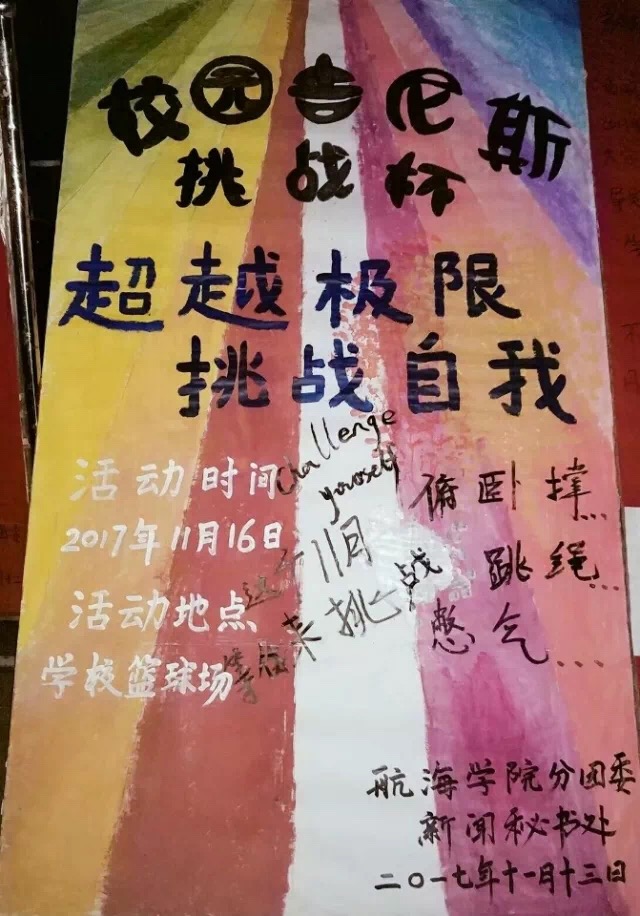 校园吉尼斯
挑战杯
超越极限
挑战自我
Challenge
yourself
活动时间
2017年11月16日
活动地点
学校篮球场
这个11月
来挑战
俯卧撑...
跳绳...
憋气...
航海学院分团委
新闻秘书处
二〇一七年十一月十三日